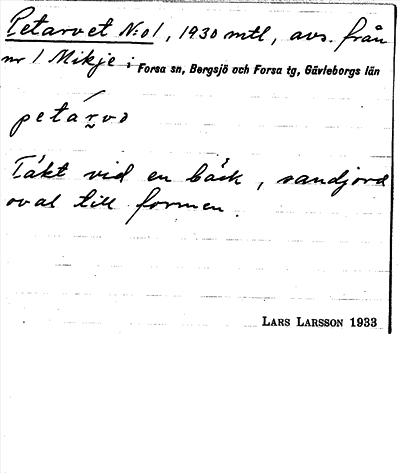 Petarvet N:o 1, 1930 mtl, avs. från
nr 1 Mikje i Forsa sn, Bergsjö och Forsa tg, Gävleborgs län
petárvo
Täkt vid en bäck, sandjord
oval till formen.
LARS LARSSON 1933